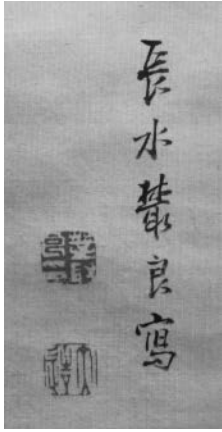 長水叢良寫